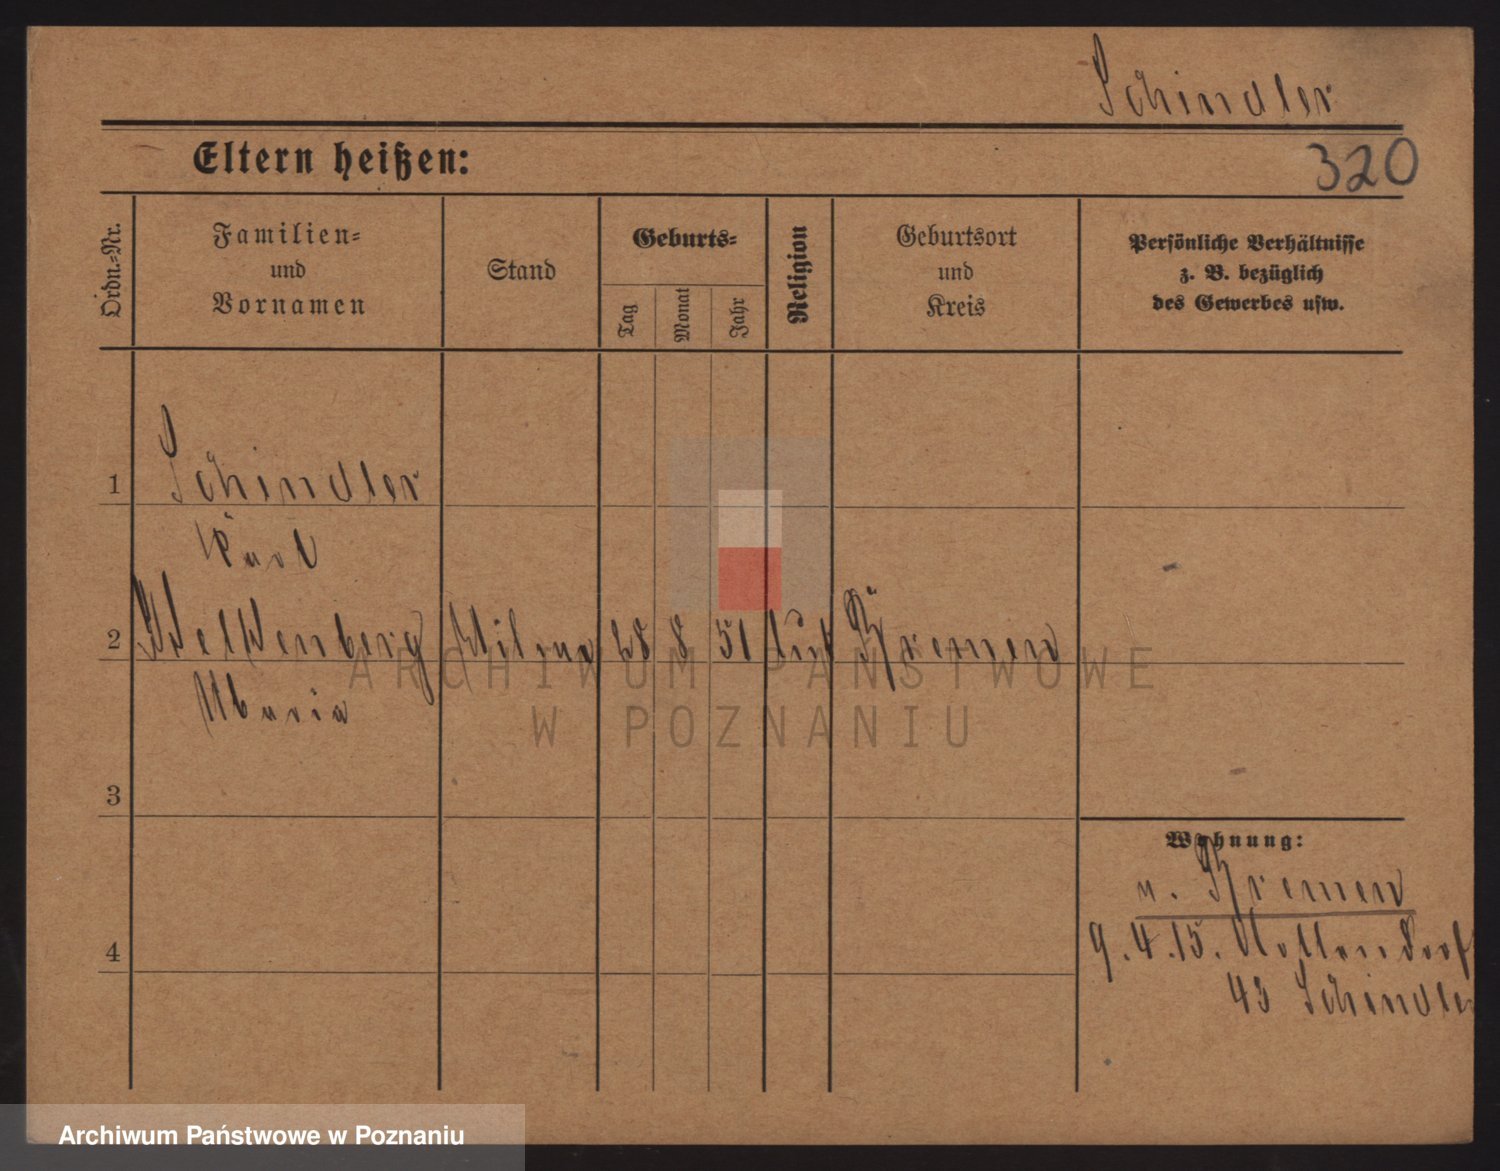 Schindler
Eltern heißen:
320
Ordn.-Nr.
Familien-
und
Vornamen
Stand
Geburts-
Tag
Monat
Jahr
Religion
Geburtsort
und
Kreis
Persönliche Verhältnisse
z. B. bezüglich
des Gewerbes usw.
1
Schindler
Karl
2
28 8 51 Bremen
Maria
3
Wohnung:
v. Bremen
4
9.4.15.
43 Schindler
ARCHIWUM PAŃSTWOWE
W POZNANIU
Archiwum Państwowe w Poznaniu